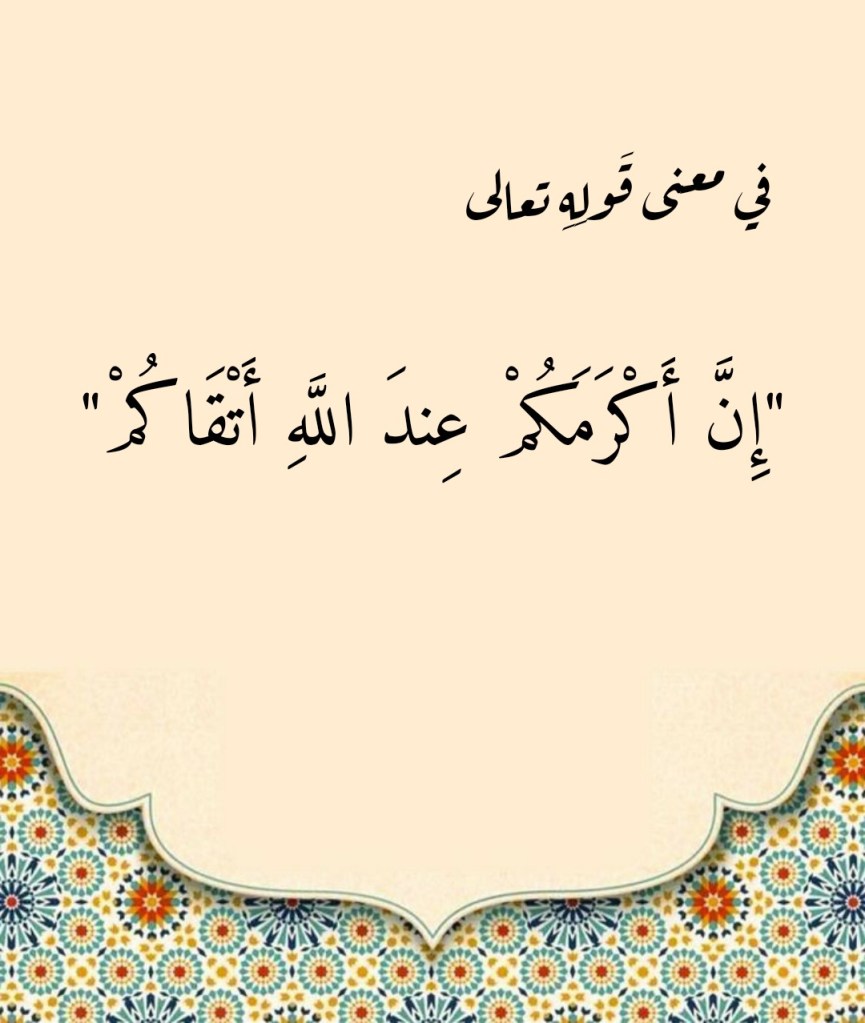 في معنى قَولِهِ تعالى
"إِنَّ أَكْرَمَكُمْ عِندَ اللَّهِ أَتْقَاكُمْ"